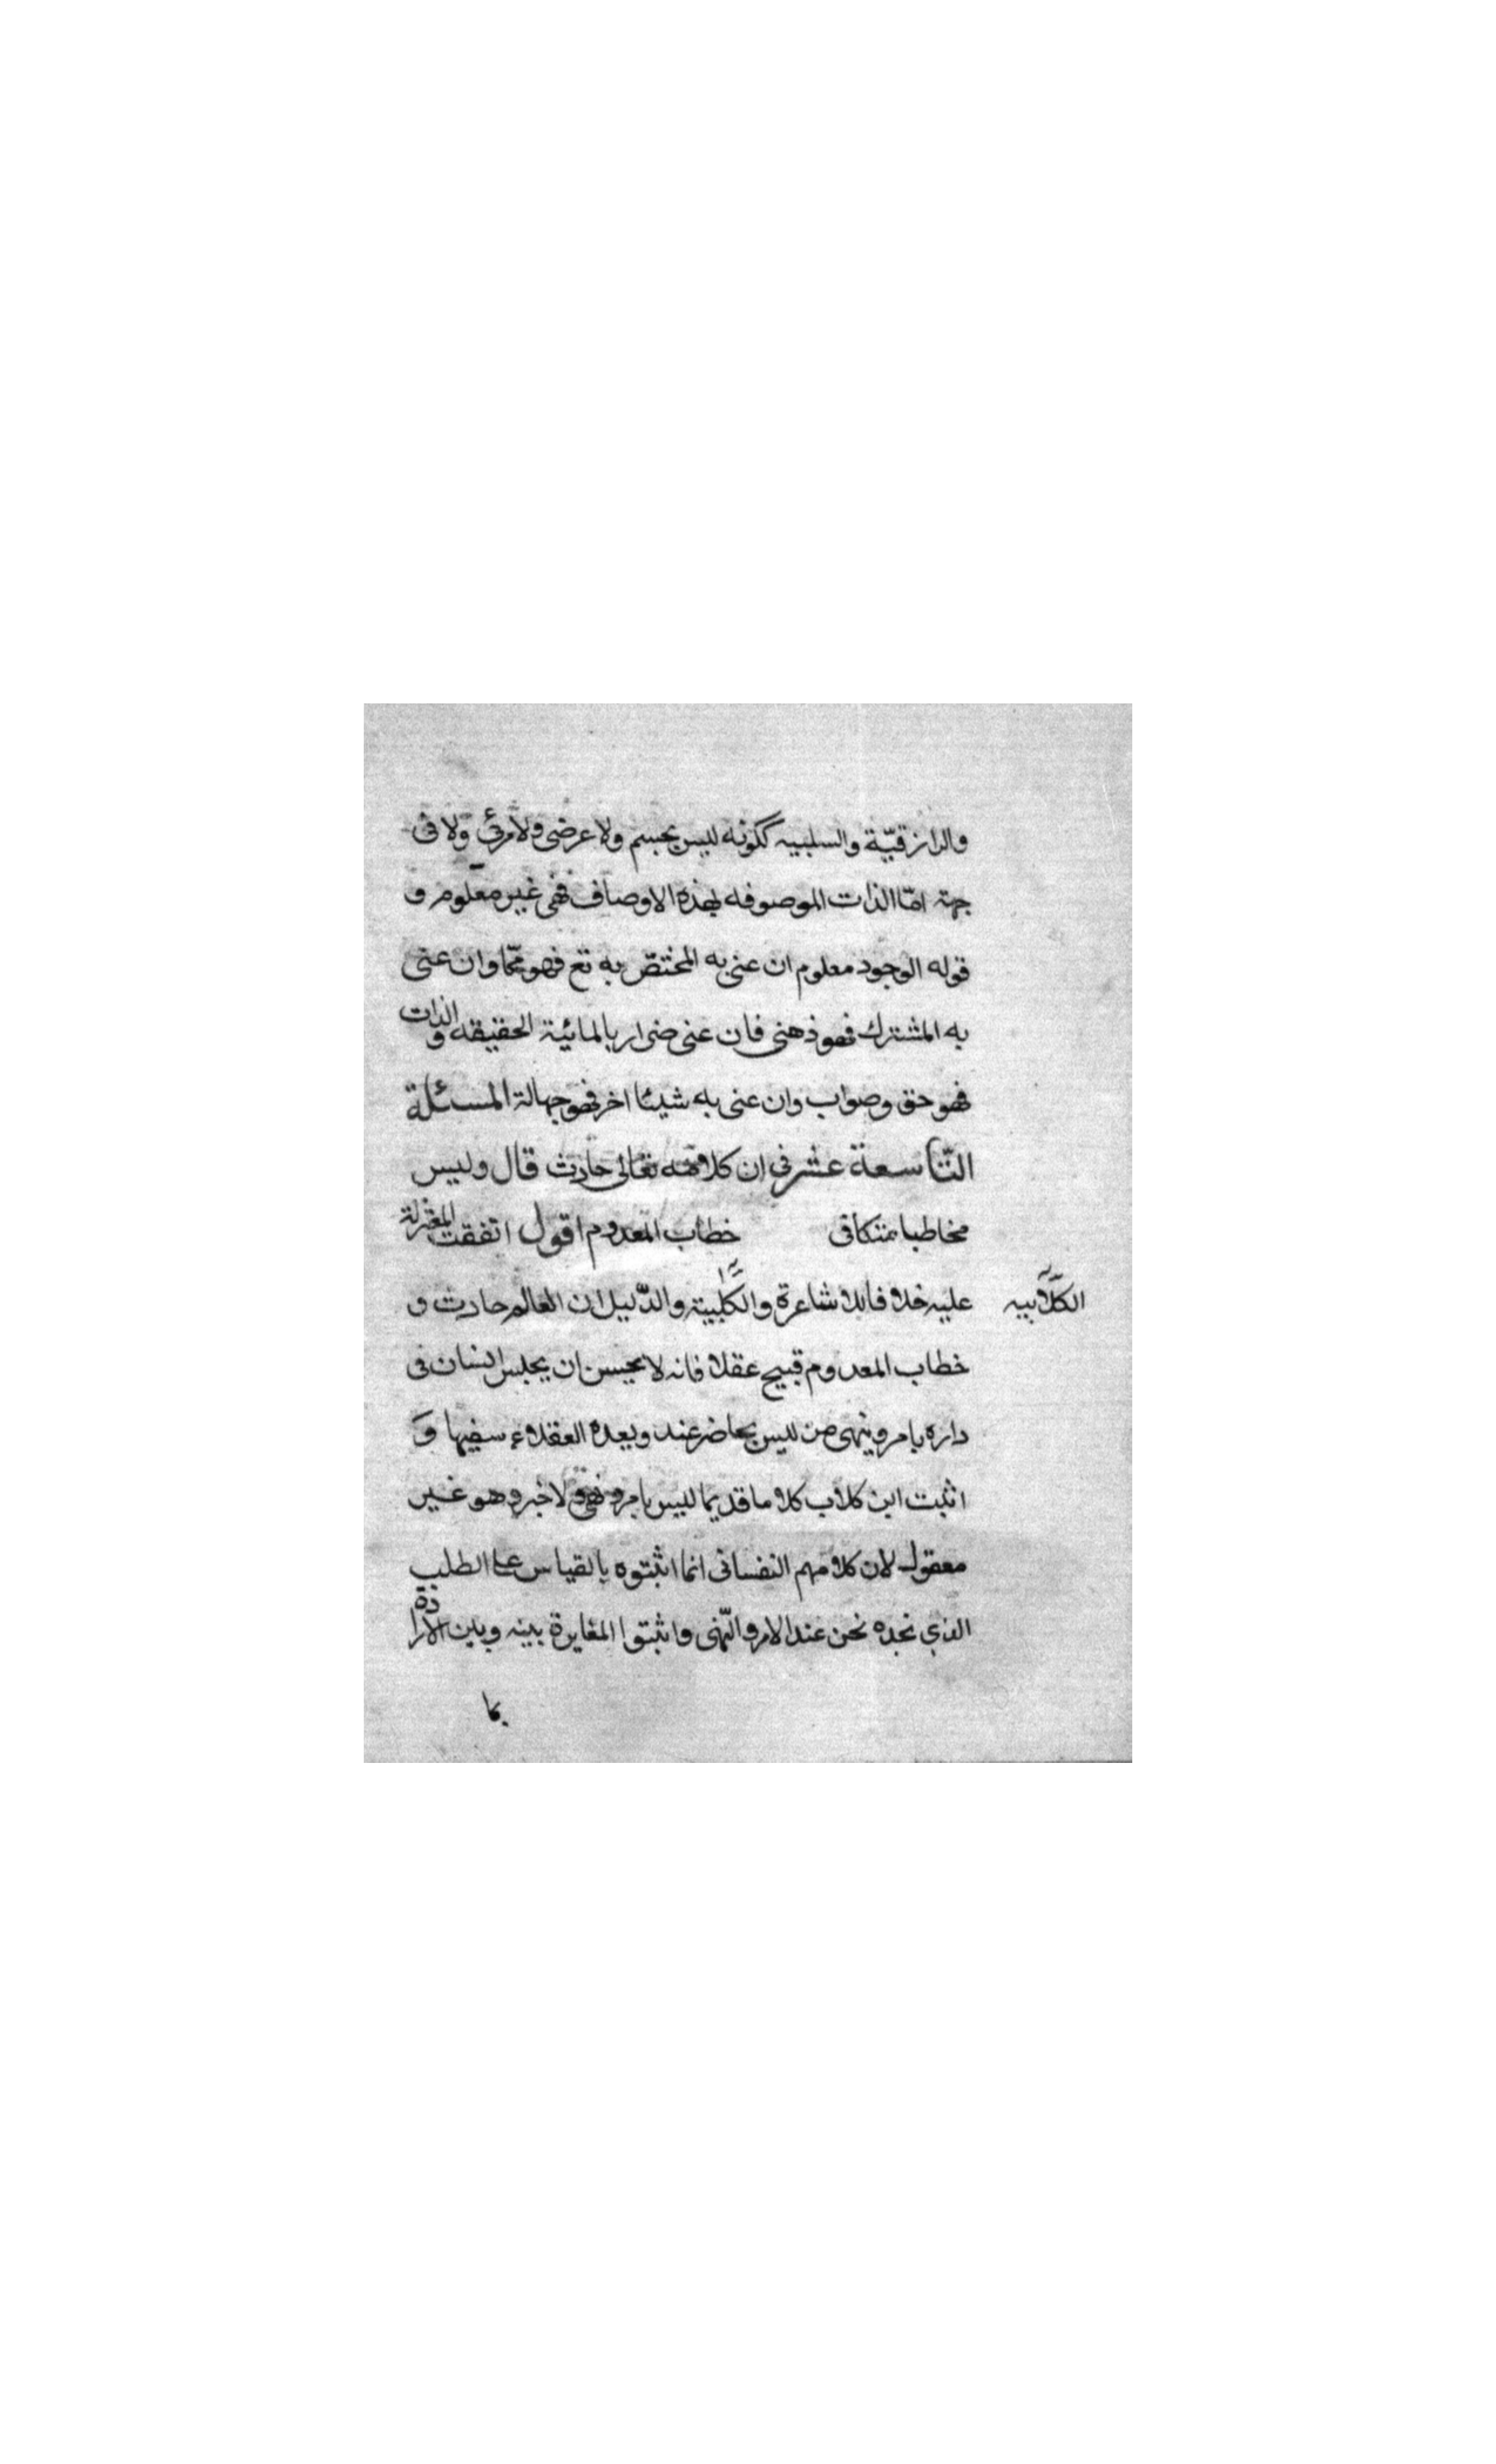 والرازقيّة والسلبيه ككونه ليس بجسم ولا عرض ولا مرئي ولا فى
جهة امّا الذات الموصوفه بهذه الاوصاف فهى غير معلوم و
قوله الوجود معلوم ان عنى به المختصّ به تع فهو ممّا وان عنى
به المشترك فهو ذهنى فان عنى ضرار بالمائية الحقيقه و الذات
فهو حق وصواب وان عنى به شيئا اخر فهو جهالة المسئلة
التّاسعة عشر فى ان كلامه تعالى حادث قال وليس
مخاطبا خطاب المعدوم اقول اتفقت المعتزلة
عليه خلافا للاشاعرة والكلّابية والدّليل ان العالم حادث و
الكلّابيه
خطاب المعدوم قبيح عقلا فانه لا يحسن ان يجلس انسان فى
داره يامر وينهى من ليس بحاضر عنده ويعده العقلاء سفيها وَ
اثبت ابن كلاب كلاما قديما ليس بامر ونهى ولا خبر وهو غير
معقول لان كلامهم النفسانى انما اثبتوه بالقياس على الطلب
الذي نجده نحن عند الامر والنّهى واثبتوا المغايرة بينه وبين الارادة
بما